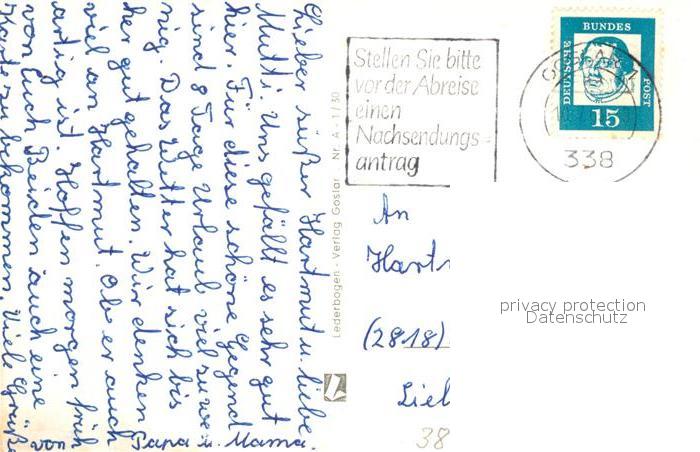 Lieber süßer Hartmut u. liebe
Mutti. Uns gefällt es sehr gut
hier. Für diese schöne Gegend
sind 8 Tage Urlaub viel zu we-
nig. Das Wetter hat sich bis
her gut gehalten. Wir denken
viel an Hartmut. Ob er auch
artig ist. Hoffen morgen früh
von Euch Beiden auch eine
Karte zu bekommen. Viele Grüße
von Papa u. Mama.
Lederbogen - Verlag Goslar Nr. A - 1/30
Stellen Sie bitte
vor der Abreise
einen
Nachsendungs-
antrag
DEUTSCHE
BUNDES
POST
15
338
An
Hart
(2818)
Lieb
38
privacy protection
Datenschutz